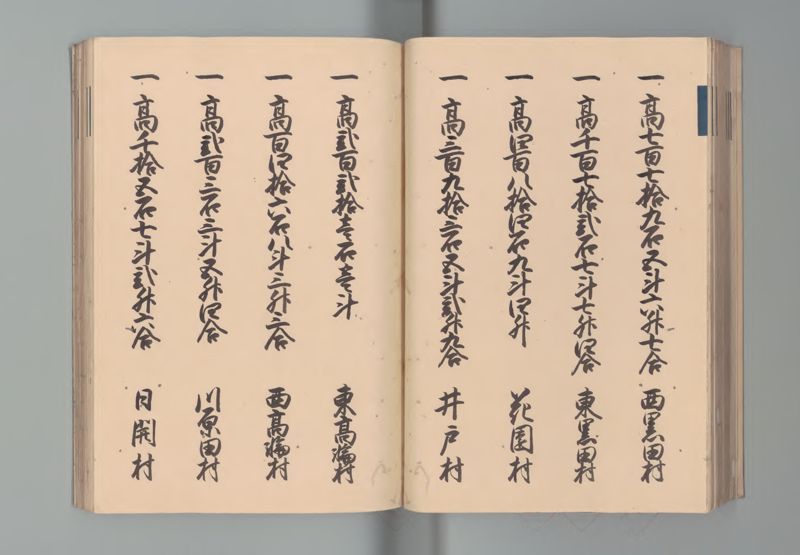 一 高七百七拾九石五斗六升七合 西黒田村
一 高千百七拾弐石七斗七升四合 東黒田村
一 高四百八拾四石九斗四升 花園村
一 高三百九拾三石五斗弐升九合 井戸村
一 高弐百弐拾壱石壱斗 東高篠村
一 高百四拾六石八斗三升三合 西高篠村
一 高弐百三石三斗五升四合 川原田村
一 高千拾五石七斗弐升六合 日開村